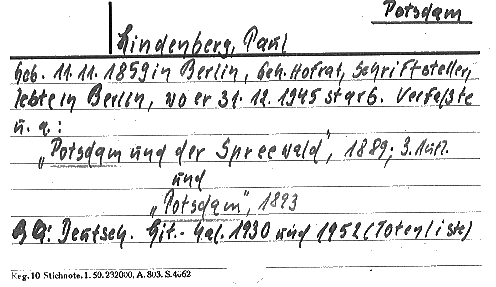 Potsdam
Lindenberg, Paul
Geb. 11.11.1859 in Berlin, Geh. Hofrat, Schriftsteller,
lebte in Berlin, wo er 31.12.1945 starb. Verfaßte
u. a.:
„Potsdam und der Spreewald", 1889; 3. Aufl.
und
„Potsdam", 1893
BQ: Deutsch. Lit.-Kal. 1930 und 1952 (Totenliste)
Reg. 10 Stichnote. 1. 50. 232000. A. 803. S. 4062